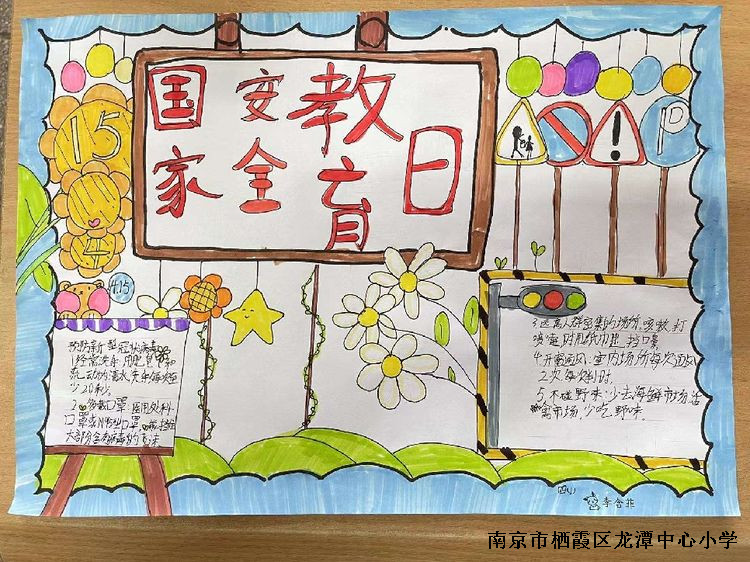 国家安全教育日
15
4
4.15
P
预防新型冠状病毒
1经常洗手 用肥皂和
流动的清水,洗手每次至
少20秒。
2 多戴口罩:医用外科
口罩或N95口罩
大部分含有病毒的飞沫
3.远离人群密集的场所,咳嗽,打
喷嚏时用纸巾捂挡口鼻
4.开窗通风,室内场所每次通风
2次每次1时.
5.不碰野味:少去海鲜市场活
禽市场 少吃野味.
四(1)
李含菲
南京市栖霞区龙潭中心小学